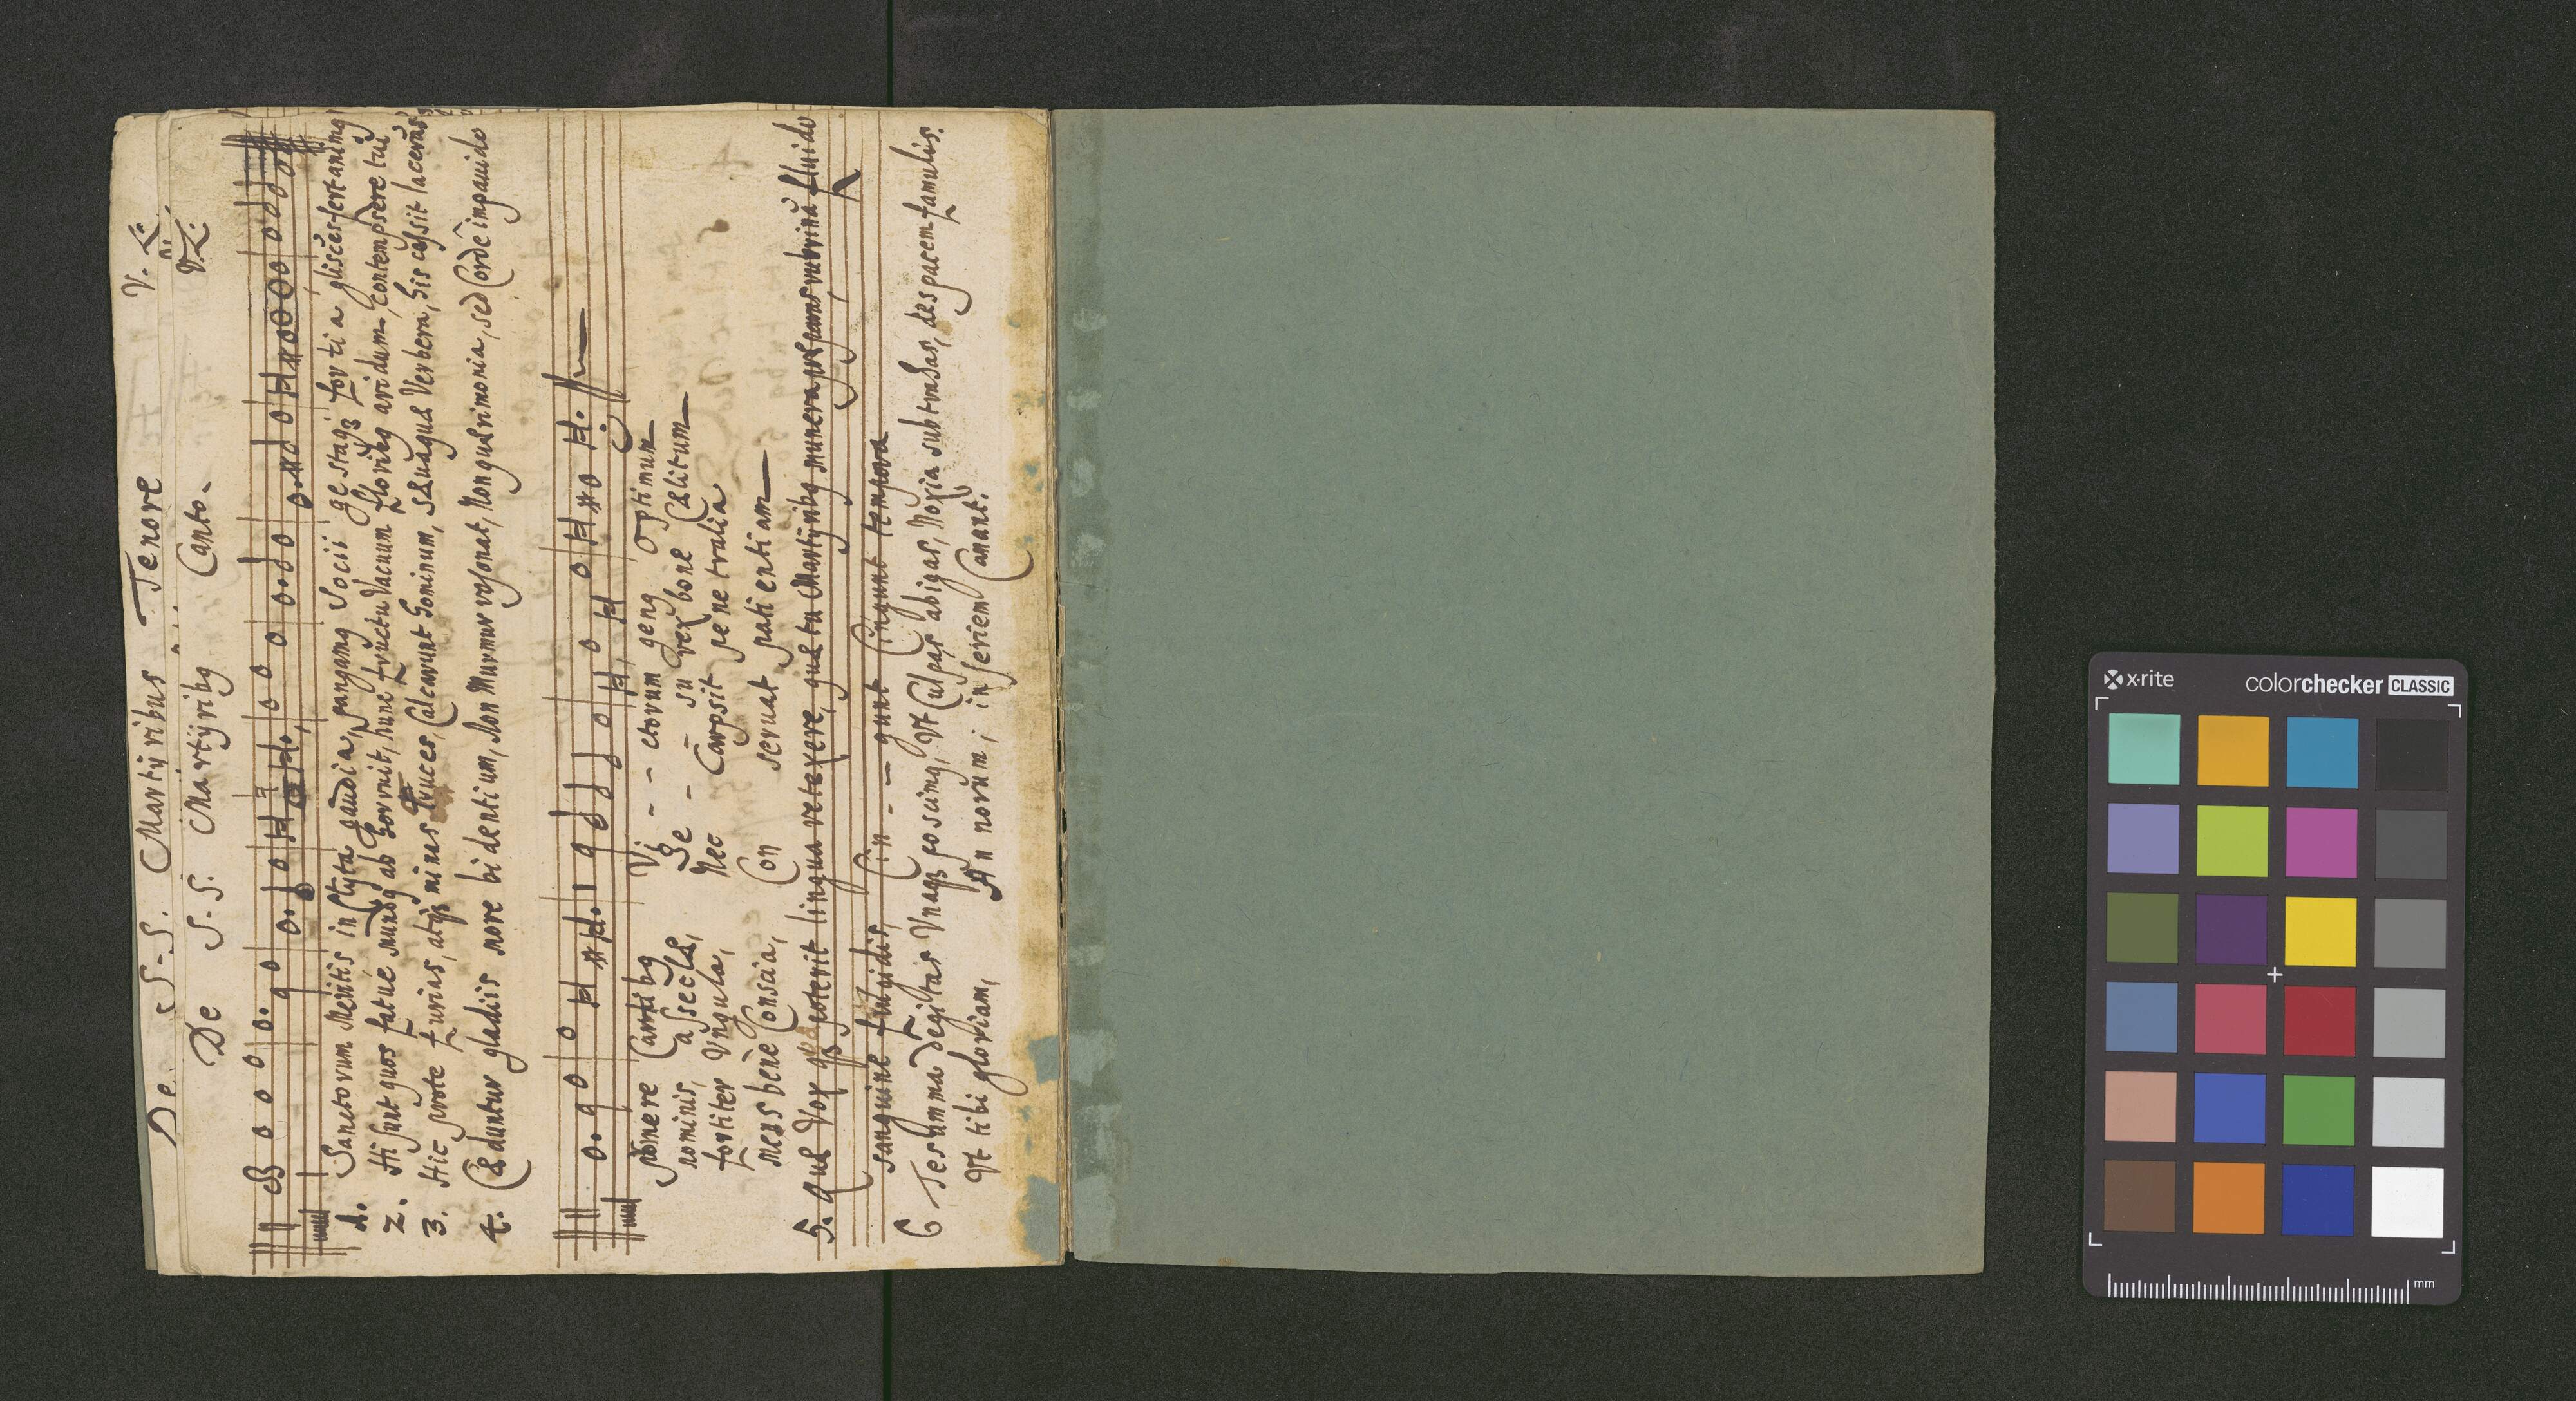 De S-S. Martÿribus Tenore V. K:
De S-S. Martÿribꝯ Canto. V. K:
1. Sanctorum Meritis inclÿta gaudia, pangamꝯ Socii gestaqꝫ fortia gliscēs fert animꝯ
2. Hi sunt quos fatue mundꝯ abhorruit, hunc fructu Vacuum floribꝯ aridum, contempsere tui
3. Hic prote furias, atqꝫ minas truces, Calcarunt hominum, sæuaque Verbera, his cessit lacerās
4. Cæduntur gladiis more bidentium, Non Murmur resonat, Non querimonia, sed Corde impauido
promere Cantibꝯ Vi - - ctorum genꝯ Optimum
nominis, assecla, Je - - su rex bone Cælitum
fortiter Vngula, Nec Carpsit penetralia
mens bene Conscia, Con seruat patientiam
5. Quæ Vox qꝫ poterit lingua retexere, quæ tu Martÿribꝯ munera præparas rubri nā fluido
sanguine fuluidis, Cin - - - gunt Cingunt tempora
6 Te summa Deitas Vnaqꝫ poscimꝯ, Vt Culpas abigas, Noxia subtrahas, des pacem famulis.
Vt tibi gloriam, An norum; in seriem Canant.
x·rite
colorchecker CLASSIC
mm